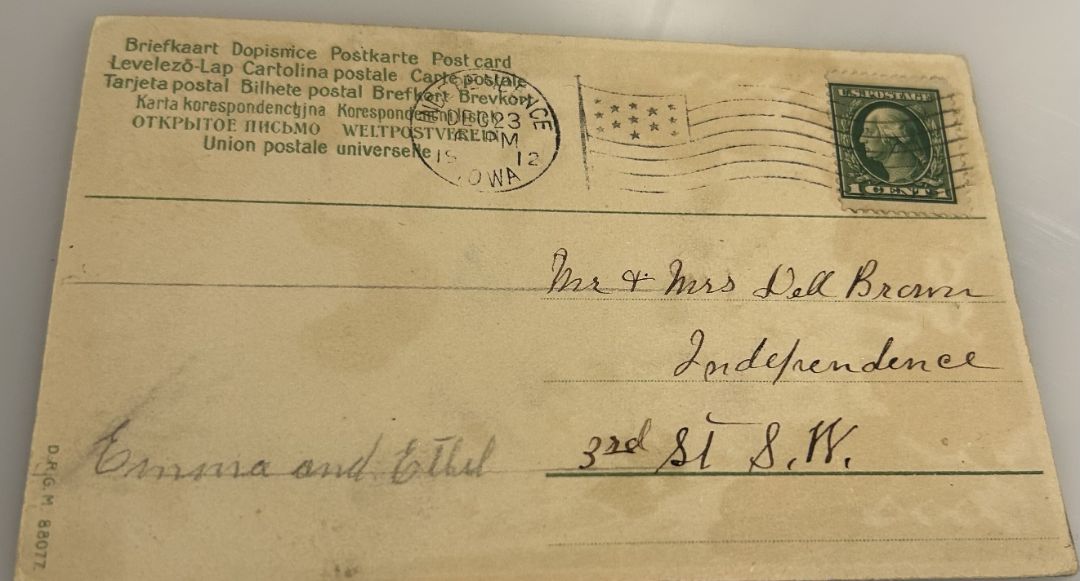 Briefkaart Dopisnice Postkarte Post card
Levelező-Lap Cartolina postale Carte postale
Tarjeta postal Bilhete postal Brefkort Brevkort
Karta korespondencyjna
ОТКРЫТОЕ ПИСЬМО WELTPOSTVEREIN
Union postale universelle
INDEPENDENCE
DEC 23
PM
19 12
IOWA
U.S. POSTAGE
1 CENT 1
Mr & Mrs Dell Brown
Independence
3rd St S.W.
Emma and Ethel
D.R.G.M. 88077.